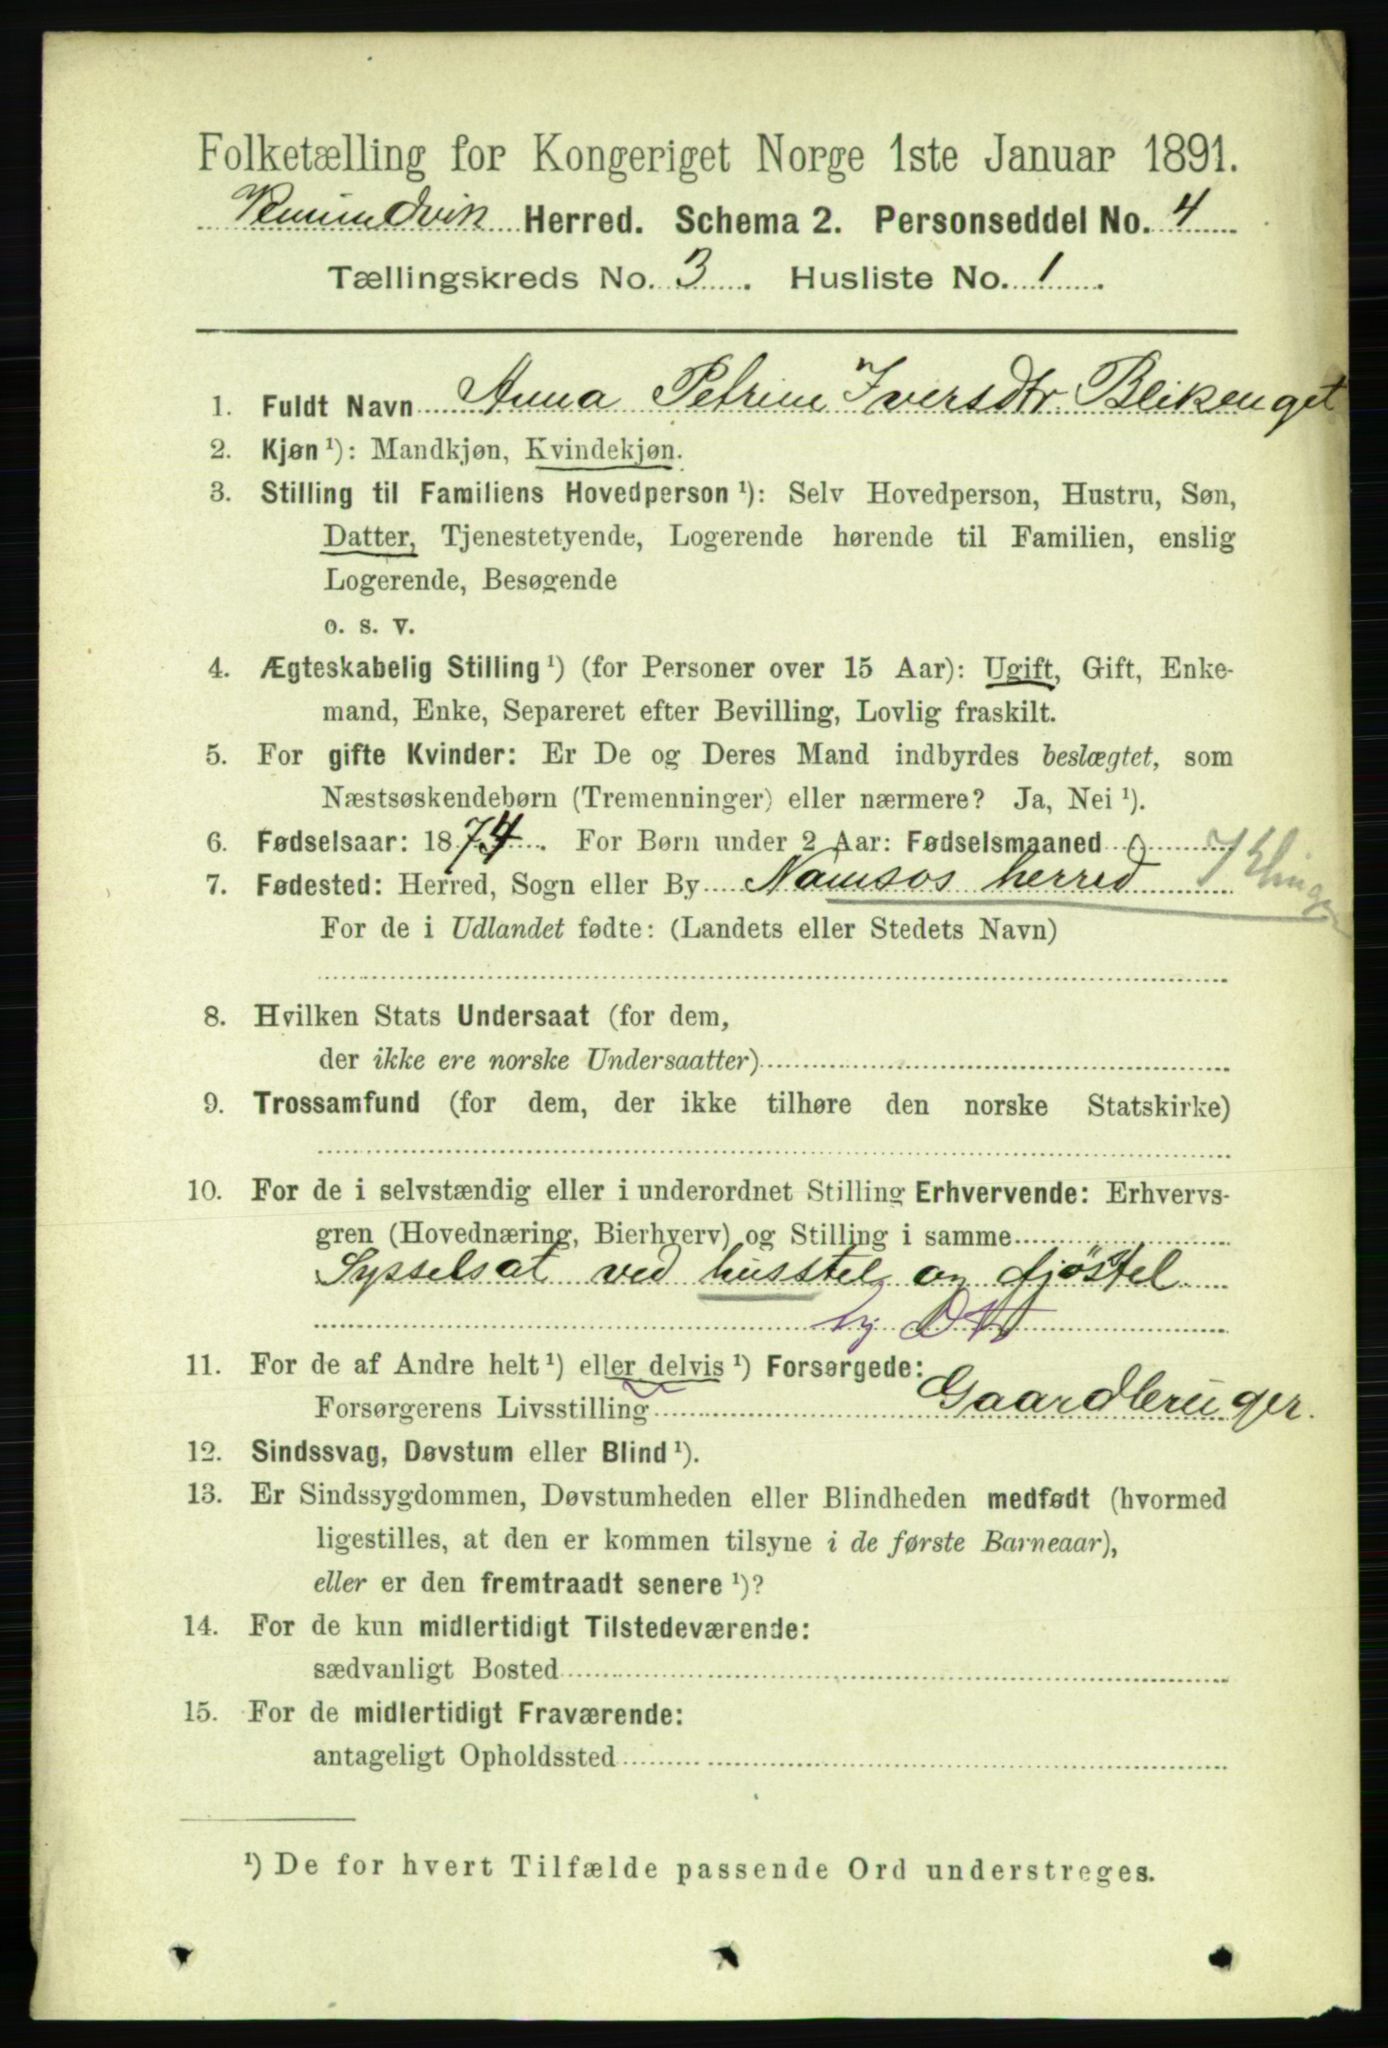 Folketælling for Kongeriget Norge 1ste Januar 1891.
Herred. Schema 2. Personseddel No. 4
Tællingskreds No. 3. Husliste No. 1.
1. Fuldt Navn Anna Petrine Iversdtr. Blikenget
2. Kjøn ¹): Mandkjøn, Kvindekjøn.
3. Stilling til Familiens Hovedperson ¹): Selv Hovedperson, Hustru, Søn,
Datter, Tjenestetyende, Logerende hørende til Familien, enslig
Logerende, Besøgende
o. s. v.
4. Ægteskabelig Stilling ¹) (for Personer over 15 Aar): Ugift, Gift, Enke-
mand, Enke, Separeret efter Bevilling, Lovlig fraskilt.
5. For gifte Kvinder: Er De og Deres Mand indbyrdes beslægtet, som
Næstsøskendebørn (Tremenninger) eller nærmere? Ja, Nei ¹).
6. Fødselsaar: 1874. For Børn under 2 Aar: Fødselsmaaned
7. Fødested: Herred, Sogn eller By Namsos herred
For de i Udlandet fødte: (Landets eller Stedets Navn)
8. Hvilken Stats Undersaat (for dem,
der ikke ere norske Undersaatter)
9. Trossamfund (for dem, der ikke tilhøre den norske Statskirke)
10. For de i selvstændig eller i underordnet Stilling Erhvervende: Erhvervs-
gren (Hovednæring, Bierhverv) og Stilling i samme
Sysselsat ved husstel og fjøstel
11. For de af Andre helt ¹) eller delvis ¹) Forsørgede:
Forsørgerens Livsstilling Gaardbruger.
12. Sindssvag, Døvstum eller Blind ¹).
13. Er Sindssygdommen, Døvstumheden eller Blindheden medfødt (hvormed
ligestilles, at den er kommen tilsyne i de første Barneaar),
eller er den fremtraadt senere ¹)?
14. For de kun midlertidigt Tilstedeværende:
sædvanligt Bosted
15. For de midlertidigt Fraværende:
antageligt Opholdssted
¹) De for hvert Tilfælde passende Ord understreges.